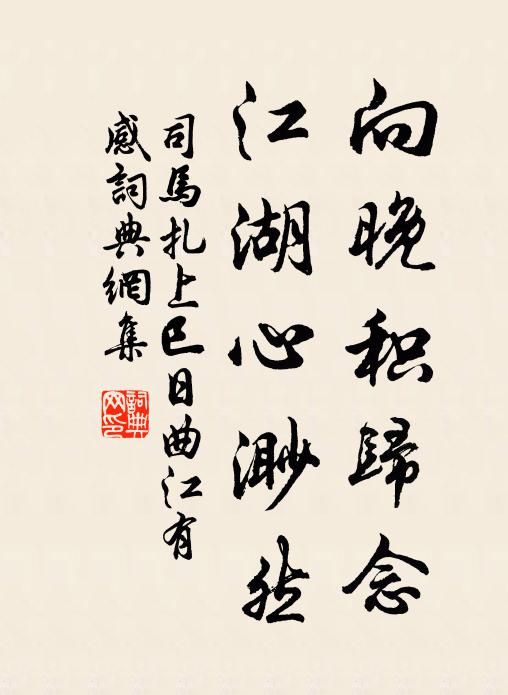 向晚积歸念
江湖心渺然
司馬扎上巳日曲江有
感詞典網集
詞典
网印